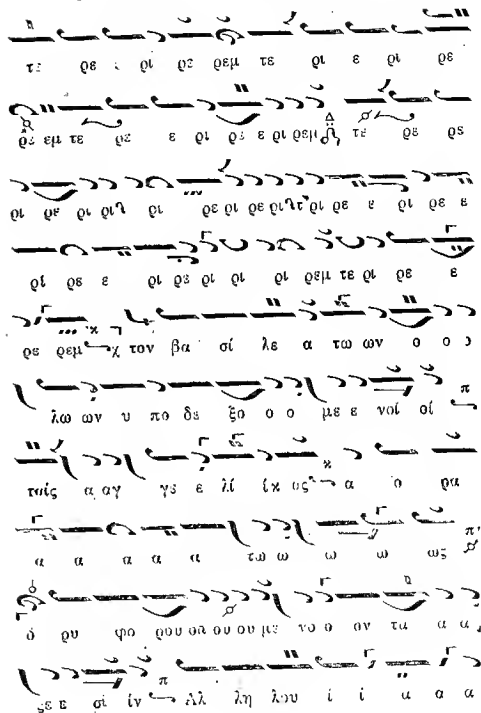 τε ρε ε ρι ρε ρεμ τε ρι ε ρι ρε
ρε εμ τε ρε ε ρι ρε ε ρι ρεμ τε ρε ρε
ρι ρε ρι ρι ρι ρε ρι ρε ρι τε ρι ρε ε ρι ρε ε
ρι ρε ε ρι ρε ρι ρι ρι ρεμ τε ρι ρε ε
ρε ρεμ χ τον βα σί λε α τω ων ο ο ο
λω ων υ πο δε ξο ο ο με ε νοί οί π
ταίς α αγ γε ε λί ίκ αις κ α ο ρα
α α α α α τω ω ω ω ως π
δ ρυ φο ρου ου ου ου με νο ο ον τα α α
ξε ε σί ίν π Αλ λη λου ϊ ϊ α α α